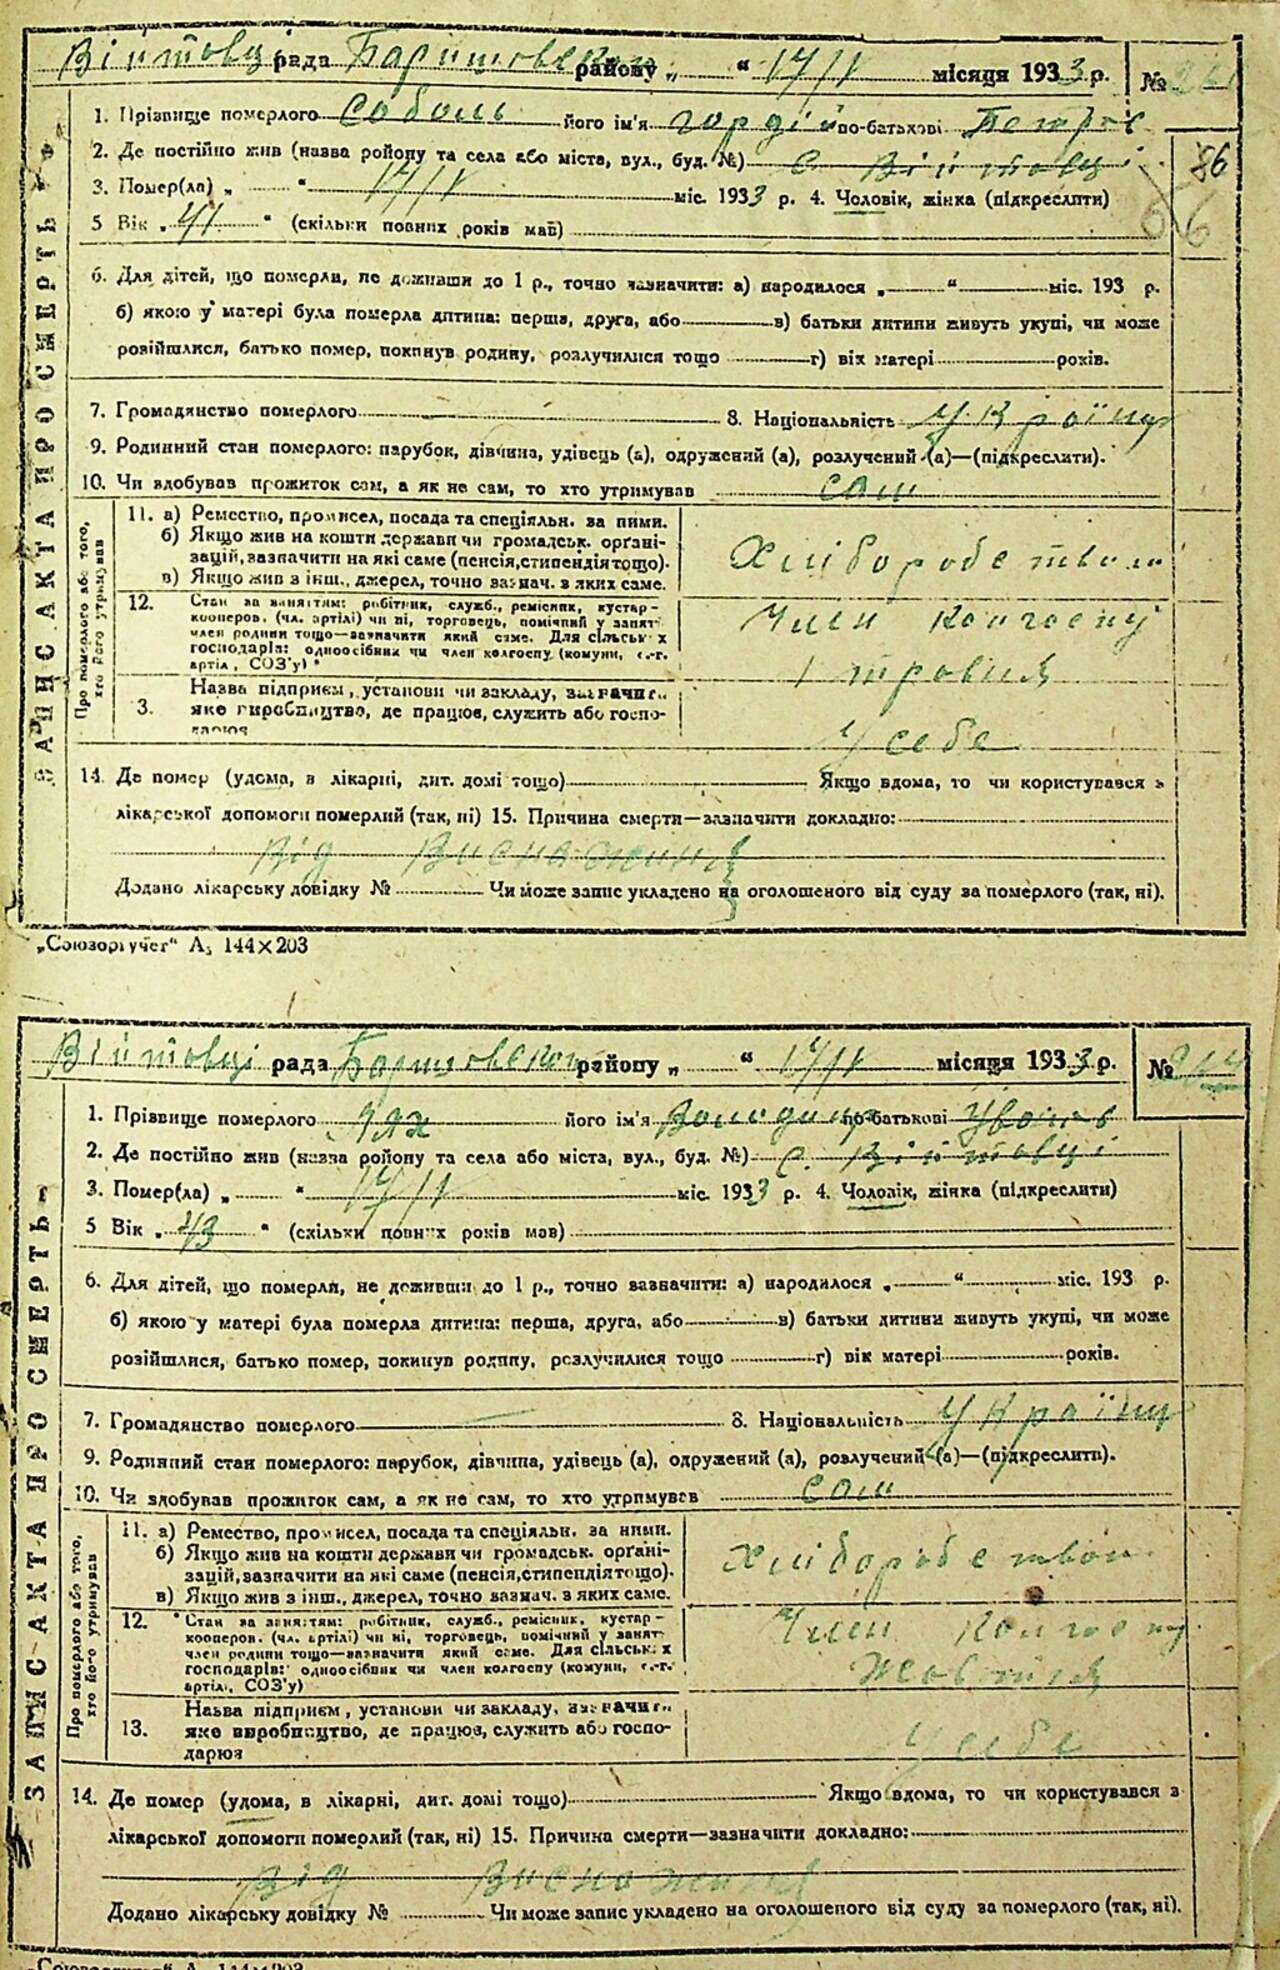 Війтовці рада Баришовском району „ “ 17/IV місяця 1933 р. №
1. Прізвище померлого Соболь його ім'я Гордій по-батькові Петров
2. Де постійно жив (назва ройону та села або міста, вул., буд. №) с. Війтовці
86
3. Помер(ла) „ “ 17/IV міс. 1933 р. 4. Чоловік, жінка (підкреслити)
66
5 Вік „ 41 “ (скільки повних років мав)
6. Для дітей, що померли, не доживши до 1 р., точно зазначити: а) народилося „ “ міс. 193 р.
б) якою у матері була померла дитина: перша, друга, або в) батьки дитини живуть укупі, чи може
розійшлися, батько помер, покинув родину, розлучилися тощо г) вік матері років.
7. Громадянство померлого 8. Національність Україну
9. Родинний стан померлого: парубок, дівчина, удівець (а), одружений (а), розлучений (а)—(підкреслити).
10. Чи здобував прожиток сам, а як не сам, то хто утримував сам
ЗАПИС АКТА ПРО СМЕРТЬ
Про померлого або того, хто його утримував
11. а) Ремество, промисел, посада та спеціяльн. за ними.
б) Якщо жив на кошти держави чи громадськ. орґані-
зацій, зазначити на які саме (пенсія, стипендія тощо).
в) Якщо жив з інш., джерел, точно вазнач. в яких саме.
Хліборобством
12. Стан за заняттям: робітник, служб., ремісник, кустар-
кооперов. (чл. артілі) чи ні, торговець, помічний у занят
член родини тощо—зазначити який саме. Для сільськ х
господарів: одноосібник чи член колгоспу (комуни, с.-г.
артіл, СОЗ'у)
Член колгоспу
1 травня
3. Назва підприєм, установи чи закладу, зазначити
яке виробництво, де працює, служить або госпо-
дарює
У себе
14. Де помер (удома, в лікарні, дит. домі тощо) Якщо вдома, то чи користувався з
лікарської допомоги померлий (так, ні) 15. Причина смерти—зазначити докладно:
Від Виснаження
Додано лікарську довідку № Чи може запис укладено на оголошеного від суду за померлого (так, ні).
„Союзоргучет“ А5 144×203
Війтовці рада Баришовском району „ “ 17/IV місяця 1933 р. №
1. Прізвище померлого його ім'я Володимр по-батькові
2. Де постійно жив (назва району та села або міста, вул., буд. №) С. Війтовці
3. Помер(ла) „ “ 17/IV міс. 1933 р. 4. Чоловік, жінка (підкреслити)
5 Вік „ 43 “ (скільки повних років мав)
6. Для дітей, що померли, не доживши до 1 р., точно вазначити: а) народилося „ “ міс. 193 р.
б) якою у матері була померла дитина: перша, друга, або в) батьки дитини живуть укупі, чи може
розійшлися, батько помер, покинув родину, розлучилися тощо г) вік матері років.
7. Громадянство померлого 8. Національність Україну
9. Родинний стан померлого: парубок, дівчина, удівець (а), одружений (а), розлучений (а)—(підкреслити).
10. Чи здобував прожиток сам, а як не сам, то хто утримував сам
ЗАПИС АКТА ПРО СМЕРТЬ
Про померлого або того, хто його утримував
11. а) Ремество, промисел, посада та спеціяльн. за ними.
б) Якщо жив на кошти держави чи громадськ. орґані-
зацій, вазначити на які саме (пенсія, стипендія тощо).
в) Якщо жив з інш., джерел, точно вазнач. з яких саме.
Хліборобством
12. Стан за заняттям: робітник, служб., ремісник, кустар-
кооперов. (чл. артілі) чи ні, торговець, помічний у занят
член родини тощо—вазначити який саме. Для сільськ х
господарів: одноосібник чи член колгоспу (комуни, с.-г.
артіл, СОЗ'у)
Член колгоспу
Жовтня
13. Назва підприєм, установи чи закладу, зазначити
яке виробництво, де працює, служить або госпо-
дарює
У себе
14. Де помер (удома, в лікарні, дит. домі тощо) Якщо вдома, то чи користувався з
лікарської допомоги померлий (так, ні) 15. Причина смерти—зазначити докладно:
Від Виснаження
Додано лікарську довідку № Чи може запис укладено на оголошеного від суду за померлого (так, ні).
„Союзоргучет“ А5 144×203